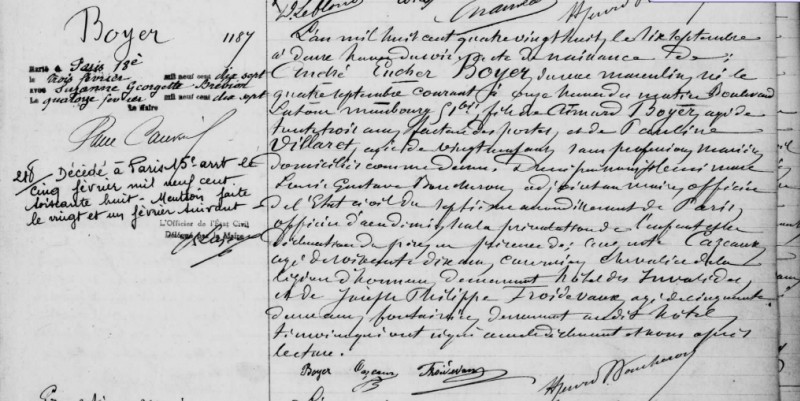 Boyer
1187
Marié à Paris 13è
le trois février mil neuf cent dix sept
avec Suzanne Georgette
Le quatorze février mil neuf cent dix sept
Le Maire
Décédé à Paris 15e arrt le
cinq février mil neuf cent
soixante huit - Mention faite
le vingt et un février suivant
L'Officier de l'État Civil
Délégué par le Maire
L'an mil huit cent quatre vingt huit, le six septembre
à deux heures du soir, acte de naissance de :
Boyer, du sexe masculin, né le
quatre septembre courant à onze heures du matin Boulevard
Latour maubourg 51 bis, fils de Armand Boyer, agé de
trente trois ans, facteur des postes, et de Pauline
Villaret, agée de vingt neuf ans, sans profession, mariés,
domiciliés comme dessus. Dressé par nous
Louis Gustave adjoint au maire, officier
de l'Etat civil du septième arrondissement de Paris,
officier d'académie, sur la présentation de l'enfant et la
déclaration du père, en présence de : Cazeaux
agé de soixante dix ans, chevalier de la
légion d'honneur, demeurant hôtel des Invalides,
et de Joseph Philippe Froidevaux, agé de cinquante
deux ans, fontainier, demeurant audit hôtel,
témoins qui ont signé avec le déclarant et nous après
lecture.
Boyer Cazeaux Froidevaux